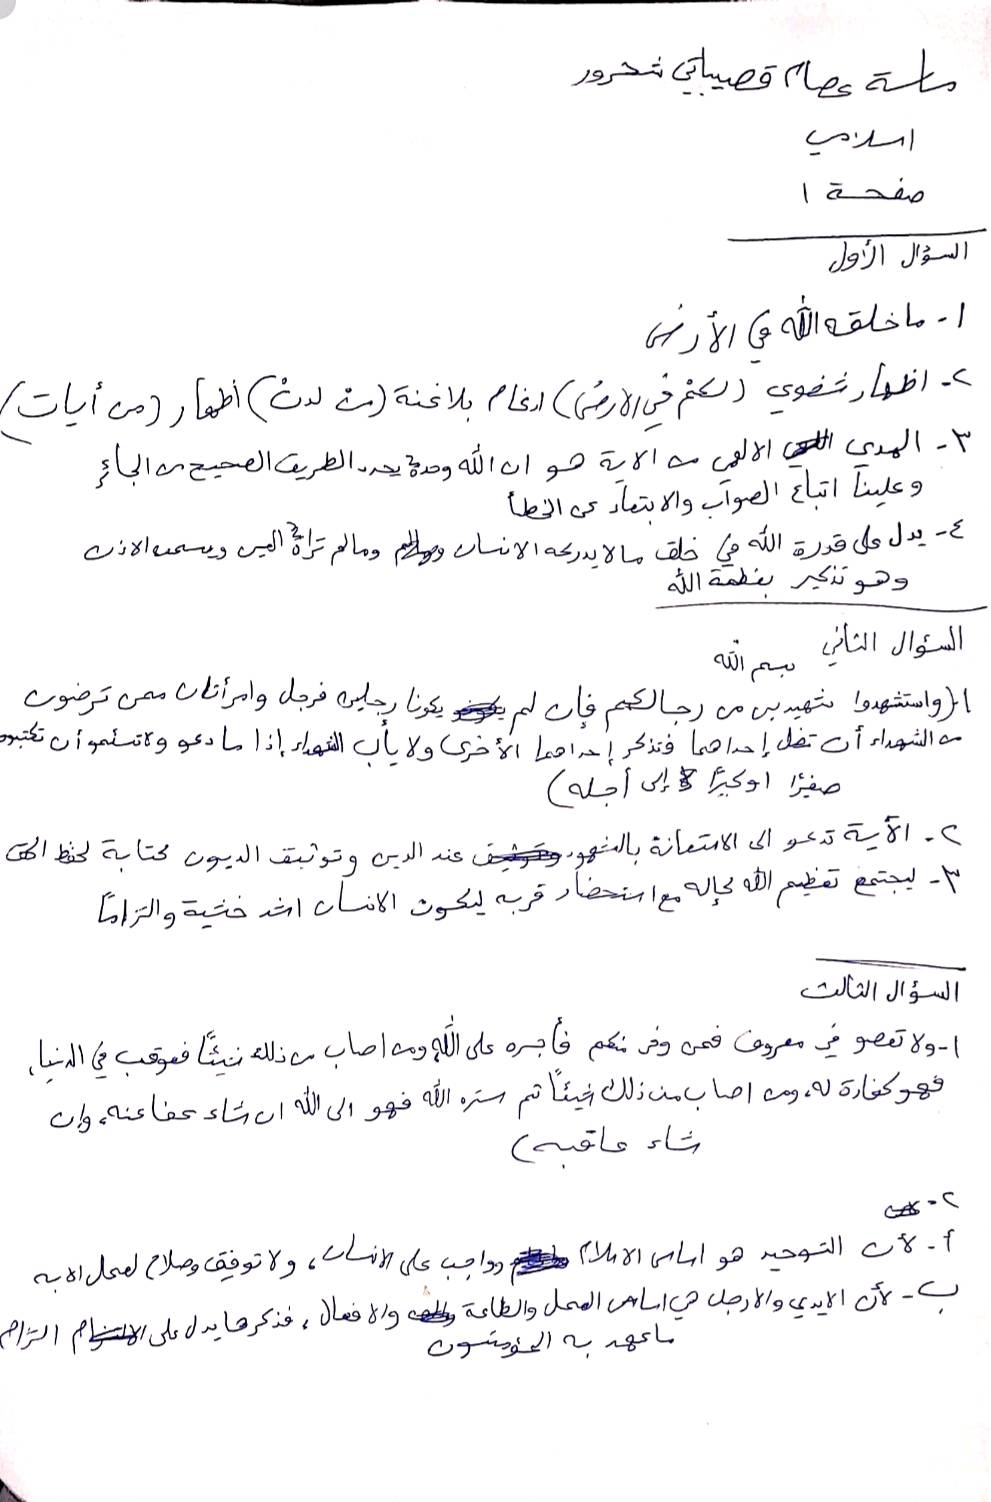 ماسة عصام قصيباتي شحرور
اسلامي
صفحة ١
السؤال الأول
١- ما خلقه الله في الأرض
٢- اظهار شفوي (لكم في الارض) ادغام بلا غنة (من لدن) أظهار (من أيات)
٣- الهدي الالهي من الاية هو ان الله وحده يحدد الطريق الصحيح من الجائر
وعلينا اتباع الصواب والابتعاد عن الخطأ
٤- يدل على قدرة الله في خلق مالا يدركه الانسان ومالم تراه العين ويسمعه الاذن
وهو تذكير بعظمة الله
السؤال الثاني
بسم الله
١- (واستشهدوا شهيدين من رجالكم فإن لم يكونا رجلين فرجل وامرأتان ممن ترضون
من الشهداء أن تضل إحداهما فتذكر إحداهما الأخرى ولا يأب الشهداء إذا ما دعو ولا تسئمو أن تكتبوه
صغيرًا اوكبيرًا إلى أجله)
٢- الآية تدعو الى الاستعانة بالشهود عند الدين وتوثيق الديون كتابة لحفظ الحق
٣- ليجتمع تعظيم الله كإله مع استحضار قربه ليكون الانسان اشد خشية والتزامًا
السؤال الثالث
١- ولا تعصو في معروف فمن وفى منكم فأجره على الله ومن اصاب من ذلك شيئًا فعوقب في الدنيا،
فهو كفارة له، ومن اصاب من ذلك شيئًا ثم ستره الله فهو الى الله ان شاء عفا عنه، وإن
شاء عاقبه)
٢-
أ- لأن التوحيد هو اساس الاسلام وواجب على الانسان، ولا توفيق وصلاح لعمل الا به
ب- لأن الايدي والارجل هي اساس العمل والطاعة والافعال، فذكرها يدل على التزام
ما عهد به المؤمنون